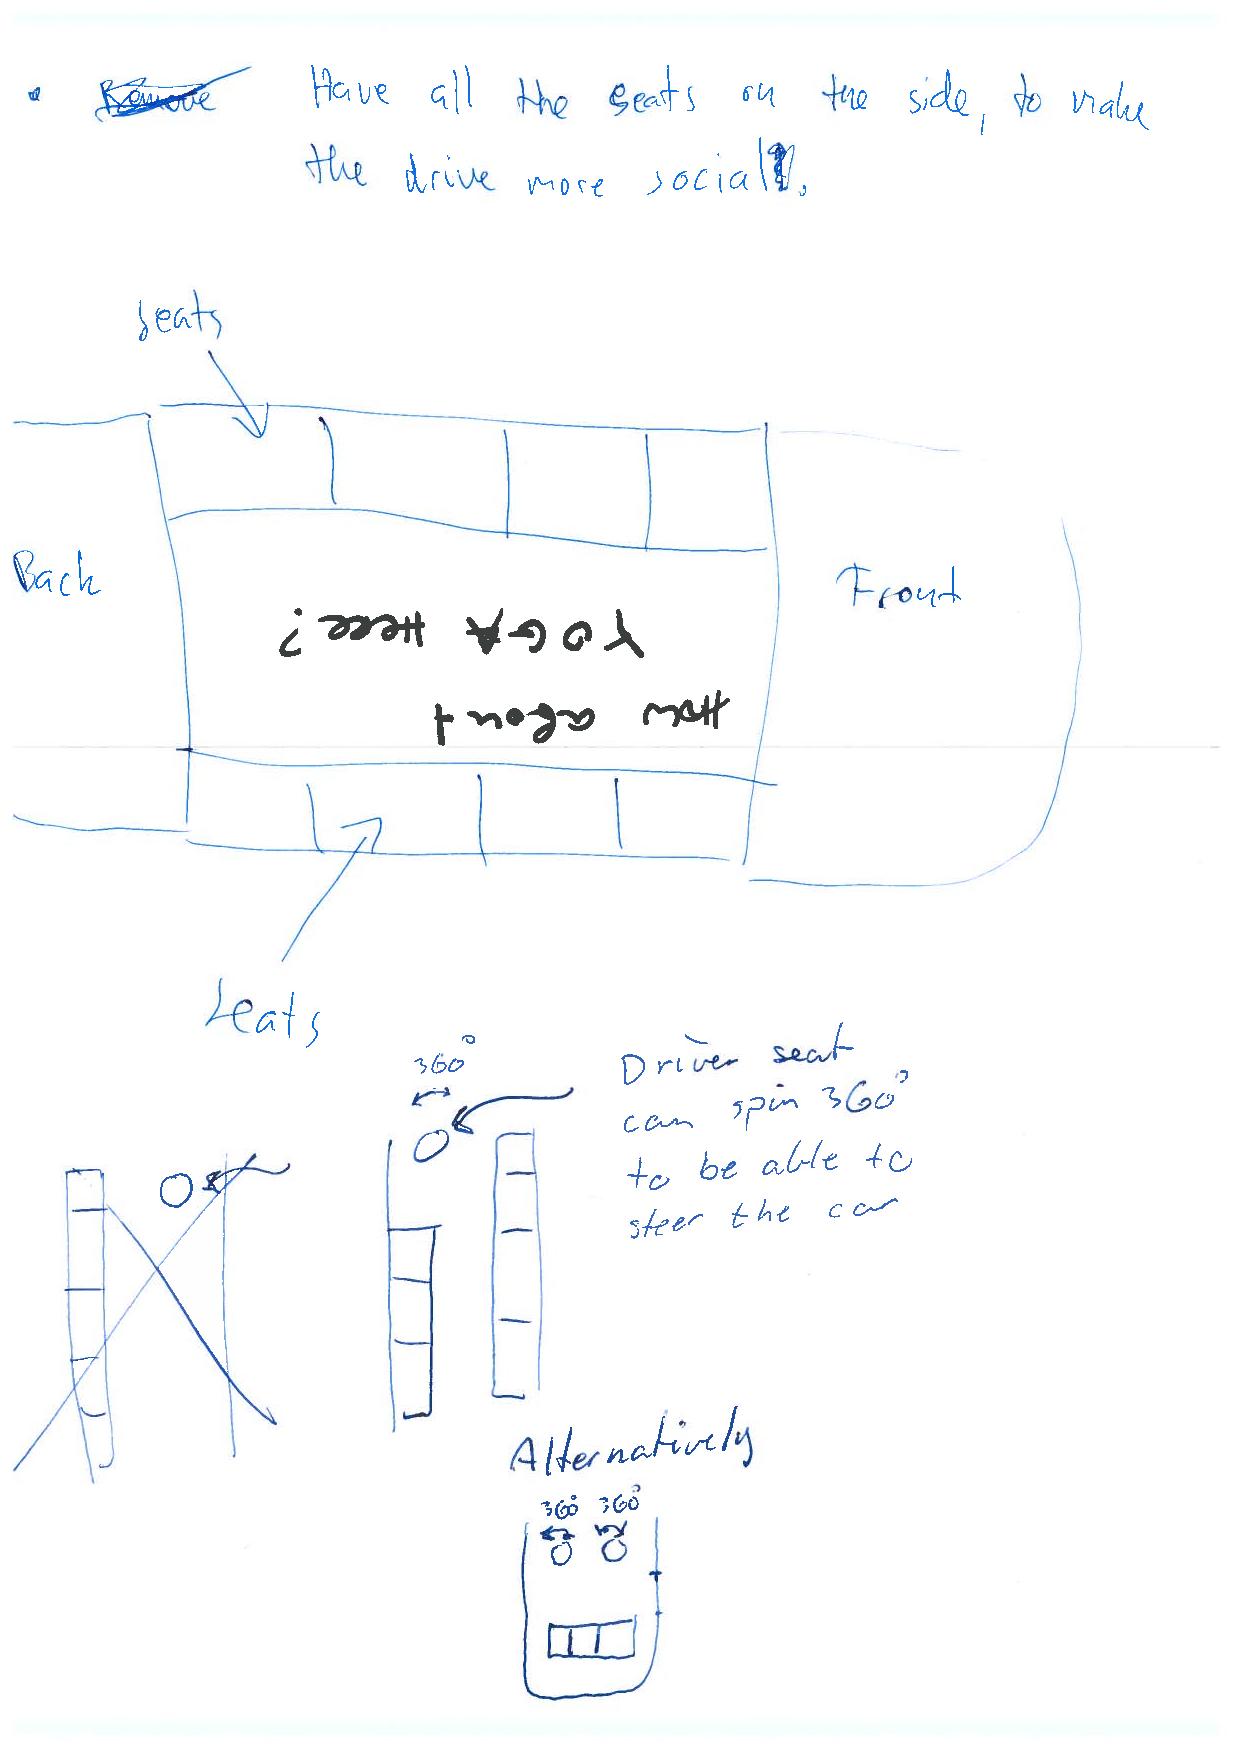 Remove Have all the seats on the side, to make
the drive more social.
seats
Back
Front
How about
YOGA Here?
seats
360°
Driver seat
can spin 360°
to be able to
steer the car
Alternatively
360° 360°